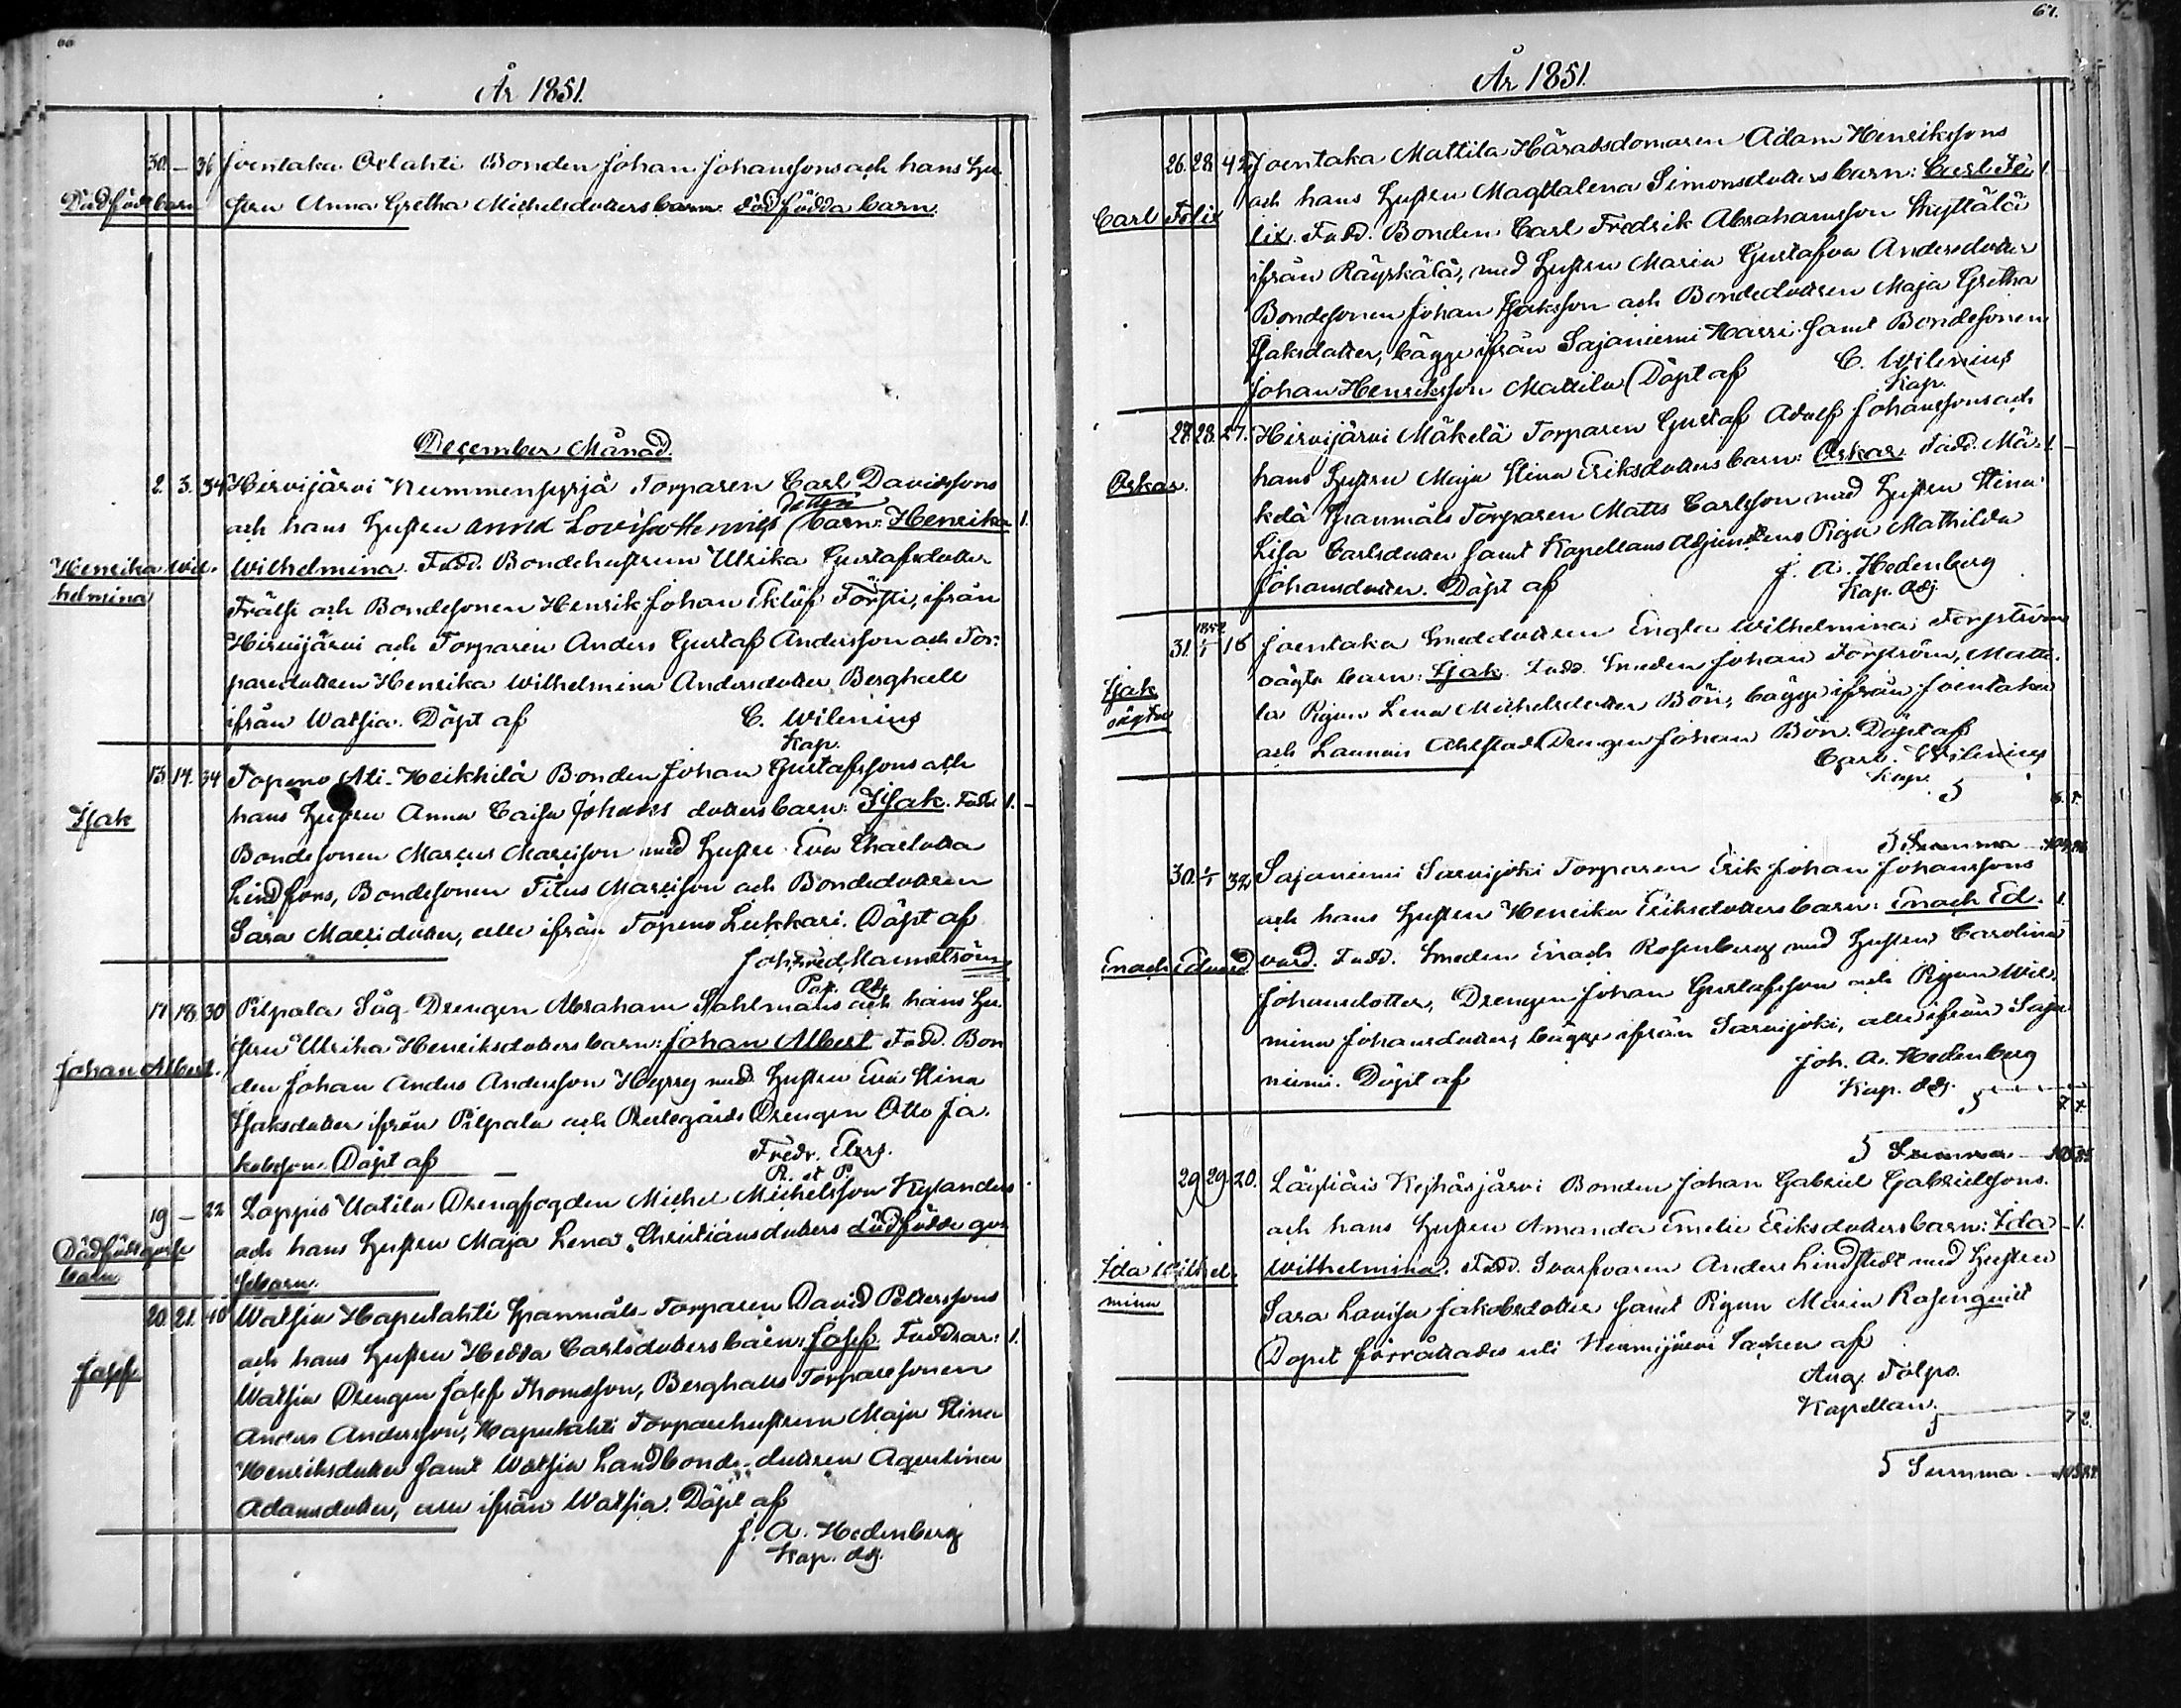 66
År 1851.
30. — 36 Joentaka Orlahti Bonden Johan Johanssons och hans Hu
Dödfödt barn stru Anna Gretha Michelsdotters barn dödfödda barn.
December Månad.
2. 3. 34 Hirvijärvi Nummensyrjä Torparen Carl Davidssons
och hans Hustru Anna Lovisa Henriks dotters barn: Henrika 1.
Henrika Wil- Wilhelmina. Fadd. Bondehustrun Ulrika Gustafsdotter
helmina Frälsi och Bondesonen Henrik Johan Eklöf Försti, ifrån
Hirvijärvi och Torparen Anders Gustaf Andersson och Tor-
paredottren Henrika Wilhelmina Andersdotter Berghäll
ifrån Watsia. Döpt af C. Wilenius
Kap.
13. 14. 34 Topeno Ali-Heikkilä Bonden Johan Gustafssons och
Isak hans Hustru Anna Caisa Johans dotters barn: Isak. Fadd 1. —
Bondesonen Marcus Marcisson med Hustru Eva Charlotta
Lindfors, Bondesonen Titus Marcisson och Bondedottren
Sara Marcidotter, alle ifrån Topeno Lukkari. Döpt af
Joh. Fred. Mannström
Past. Adj.
17 18 30 Pilpala Såg-Drengen Abraham Sahlmans och hans Hu-
stru Ulrika Henriksdotters barn: Johan Albert Fadd. Bon
Johan Albert. den Johan Anders Andersson Heprey med Hustru Eva Stina
Isaksdotter ifrån Pilpala och Drengen Otto Ja-
kobsson. Döpt af Fredr. Elers.
P. et P.
19 — 22 Loppis Uotila Drengfogden Michel Michelsson Kylanders
Dödfödt gosse och hans Hustru Maja Lena Christiansdotters dödfödde gos
barn sebarn.
20. 21. 40 Watsia Haputahti Spannmåls-Torparen David Petterssons
och hans Hustru Hedda Carlsdotters barn: Josef Faddrar: 1.
Josef Watsia Drengen Josef Thomsson, Berghälls Torparesonen
Anders Andersson, Haputahti Torparehustrun Maja Stina
Henriksdotter samt Watsia Landbonde-dottren Agustina
Adamsdotter, alle ifrån Watsia. Döpt af
J. A. Hedenberg
Kap. Adj.
67.
År 1851.
26. 28 42 Joentaka Mattila Häradsdomaren Adam Henrikssons
och hans Hustru Magdalena Simonsdotters barn: Carl Fe 1
Carl Felix lix. Fadd. Bonden Carl Fredrik Abrahamsson Kyttälä
ifrån Räyskälä, med Hustru Maria Gustafva Andersdotter
Bondesonen Johan Isaksson och Bondedottren Maja Gretha
Isaksdotter, bägge ifrån Sajaniemi Harri samt Bondesonen
Johan Henriksson Mattila Döpt af C. Wilenius
Kap.
27 28. 27. Hirvijärvi Mäkelä Torparen Gustaf Adolf Johanssons och
Oskar. hans Hustru Maja Stina Eriksdotters barn: Oskar Fadd. Mä- 1. —
kelä Spanmåls Torparen Matts Carlsson med Hustru Stina
Lisa Carlsdotter samt Kapellans Adjunctens Piga Mathilda
Johansdotter. Döpt af J. A. Hedenberg
Kap. Adj.
1852
31. 1/1 16 Joentaka Smeddottren Engla Wilhelmina Forsströms
Isak oägta barn: Isak. Fadd. Smeden Johan Forsström, Matti-
oägta la Pigan Lena Michelsdotter Böri, bägge ifrån Joentaka
och Launois Ahlstad Drengen Johan Bön. Döpt af
Carl Wilenius
Kap.
5 6. 5.
5 Summa
30. 1/1 32 Sajaniemi Sarvijoki Torparen Erik Johan Johanssons
och hans Hustru Henrika Eriksdotters barn: Enoch Ed. 1.
Enoch Eduard vard. Fadd. Smeden Enoch Rosenberg med Hustru Carolina
Johansdotter, Drengen Johan Gustafsson och Pigan Wil-
mina Johansdotter, bägge ifrån Sarvijoki, alle ifrån Saja
niemi. Döpt af Joh. A. Hedenberg
Kap. Adj.
5 7 7
5 Summa
29 29. 20. Läyliäis Keihäsjärvi Bonden Johan Gabriel Gabrielssons.
och hans Hustru Amanda Emelie Eriksdotters barn: Ida — 1.
Ida Wilhel- Wilhelmina. Fadd. Svarfvaren Anders Lindstedt med Hustru
mina Sara Lovisa Jakobsdotter samt Pigan Maria Rosenquist
Dopet förrättades uti Nurmijärvi Socken af
Aug. Tolpo.
Kapellan.
5 7 2.
5 Summa